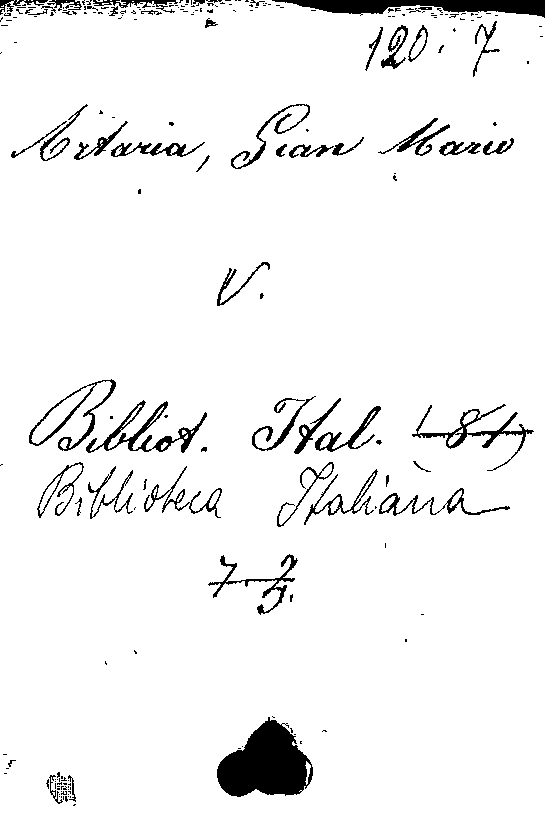 120: 7
Artaria, Gian Mario
V.
Bibliot. Ital. (81)
Biblioteca Italiana